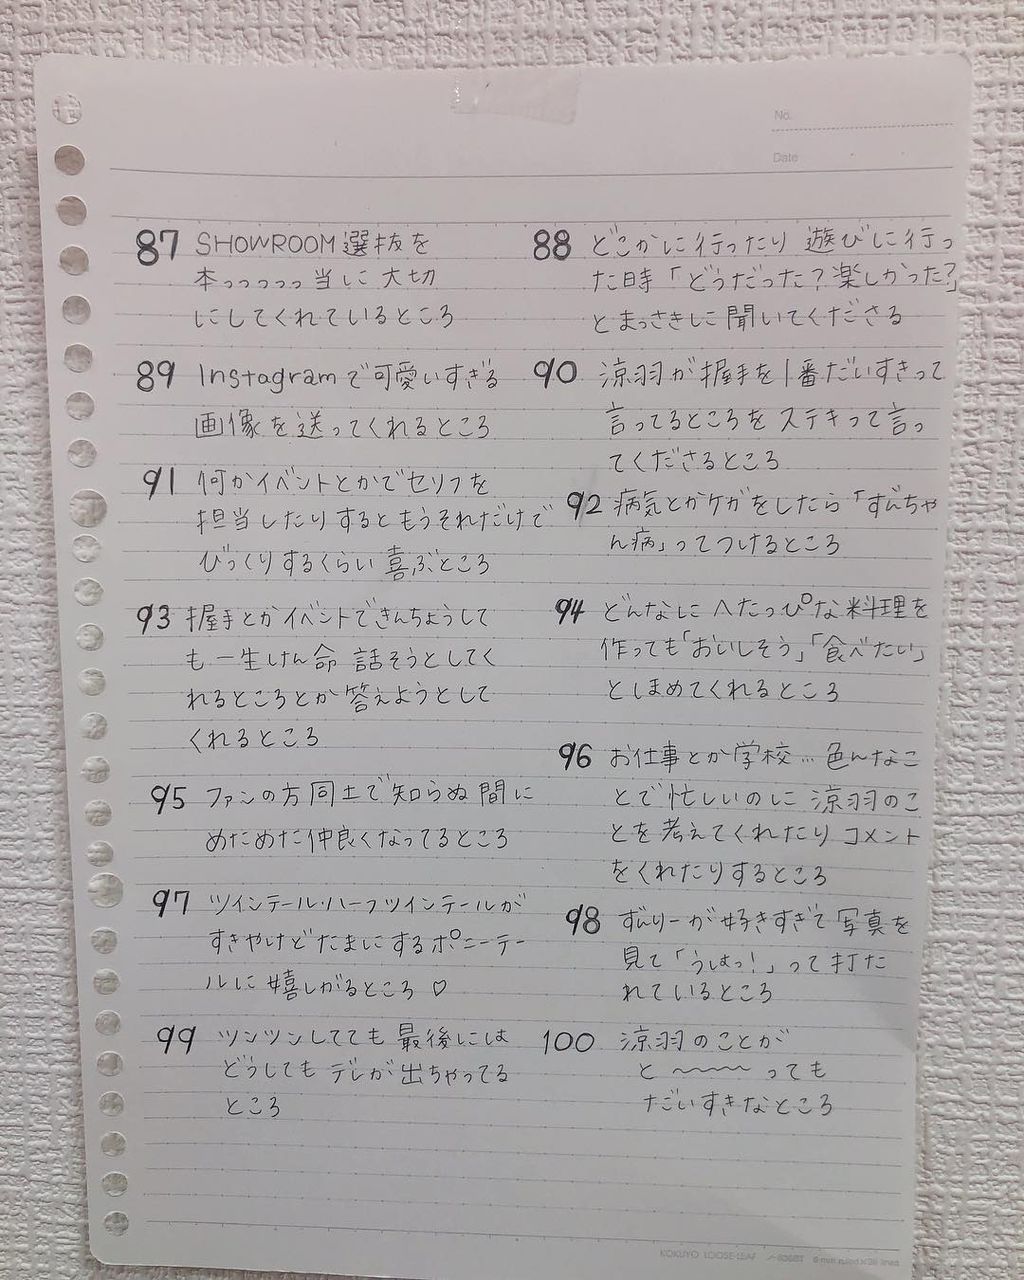 No.
Date
87 SHOWROOM選抜を
本っっっっっ当に大切
にしてくれているところ
88 どこかに行ったり 遊びに行っ
た時「どうだった?楽しかった?」
とまっさきに聞いてくださる
89 Instagramで可愛いすぎる
画像を送ってくれるところ
90 涼羽が握手を1番だいすきって
言ってるところをステキって言っ
てくださるところ
91 何かイベントとかでセリフを
担当したりするともうそれだけで
びっくりするくらい喜ぶところ
92 病気とかケガをしたら「ずんちゃ
ん病」ってつけるところ
93 握手とかイベントできんちょうして
も一生けん命 話そうとしてく
れるところとか答えようとして
くれるところ
94 どんなにへたっぴな料理を
作っても「おいしそう」「食べたい」
としまめてくれるところ
95 ファンの方同士で知らぬ間に
めためた仲良くなってるところ
96 お仕事とか学校…色んなこ
とで忙しいのに 涼羽のこ
とを考えてくれたり コメント
をくれたりするところ
97 ツインテール・ハーフツインテールが
すきやけどたまにするポニーテー
ルに嬉しがるところ♡
98 ずんりーが好きすぎて写真を
見て「うしはっ!」って打た
れているところ
99 ツンツンしてても最後には
どうしてもデレが出ちゃってる
ところ
100 涼羽のことが
と〜〜〜〜っても
だいすきなところ
KOKUYO LOOSE-LEAF